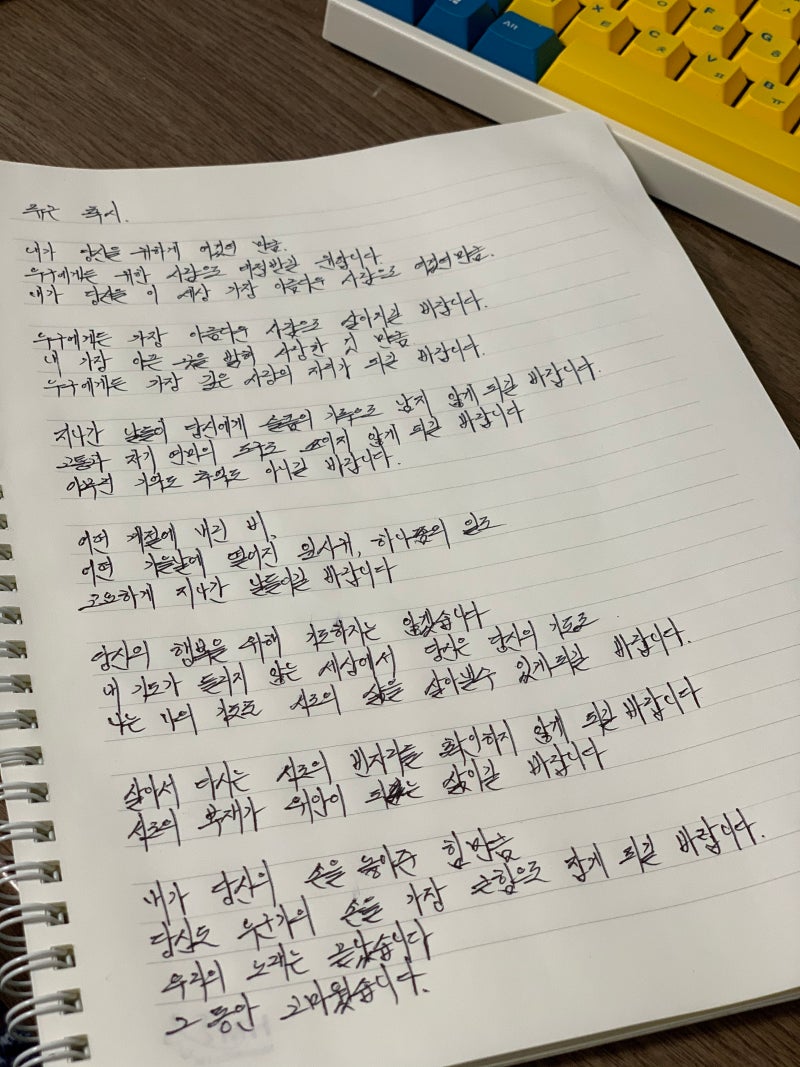 Alt
X ㅌ
C ㅊ
V ㅍ
F ㄹ
G ㅎ
B ㅠ
류근 축시.
내가 당신을 귀하게 여겼던 만큼.
누구에게든 귀한 사람으로 대접받길 원합니다.
내가 당신을 이 세상 가장 아름다운 사람으로 여겼던 만큼.
누구에게든 가장 아름다운 사람으로 살아지길 바랍니다.
내 가장 아픈 곳을 밝혀 사랑한 것 만큼
누구에게든 가장 깊은 사랑의 자리가 되길 바랍니다.
지나간 날들이 당신에게 슬픔의 기록으로 남지 않게 되길 바랍니다.
고통과 자기 연민의 도구로 쓰이지 않게 되길 바랍니다
아무런 기억도 추억도 아니길 바랍니다.
어떤 계절에 내린 비,
어떤 가을날에 떨어진 잎사귀, 하나쯤의 일로
고요하게 지나간 날들이길 바랍니다
당신의 행복을 위해 기도하지는 않겠습니다
내 기도가 들리지 않는 세상에서 당신은 당신의 기도로
나는 나의 기도로 서로의 삶을 살아낼수 있게되길 바랍니다.
살아서 다시는 서로의 빈자리를 확인하지 않게 되길 바랍니다
서로의 부재가 위안이 되는 삶이길 바랍니다
내가 당신의 손을 놓아준 힘 만큼
당신도 누군가의 손을 가장 큰힘으로 잡게 되길 바랍니다.
우리의 노래는 끝났습니다
그 동안 고마웠습니다.